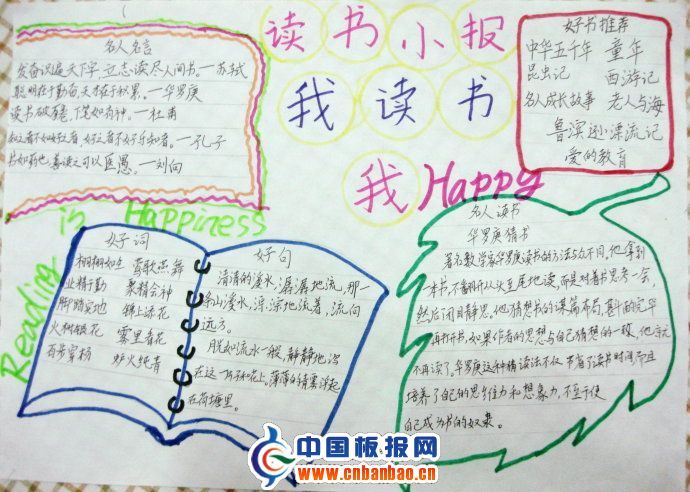 读书小报
我读书
我Happy
Reading is Happiness
名人名言
发奋识遍天下字,立志读尽人间书。—苏轼
聪明在于勤奋,天才在于积累。—华罗庚
读书破万卷,下笔如有神。—杜甫
知之者不如好之者,好之者不如乐知者。—孔子
书如药也,善读之可以医愚。—刘向
好书推荐
中华五千年 童年
昆虫记 西游记
名人成长故事 老人与海
鲁滨逊漂流记
爱的教育
好词
栩栩如生 莺歌燕舞
业精于勤 聚精会神
脚踏实地 锦上添花
火树银花 雾里看花
百步穿杨 炉火纯青
好句
清清的溪水,潺潺地流,那一
条山溪水,淙淙地流着,流向
远方。
月光如流水一般,静静地泻
在这一片叶子和花上。薄薄的青雾浮起
在荷塘里。
名人读书
华罗庚猜书
著名数学家华罗庚读书的方法与众不同,他拿到
一本书,不是翻开从头至尾地读,而是对着书思考一会,
然后闭目静思。他猜想书的谋篇布局,斟酌完毕
再打开书,如果作者的思想与自己猜想的一致,他就
不再读了。华罗庚这种猜读法不仅节省了读书时间,而且
培养了自己的思维力和想象力,不至于使
自己成为书的奴隶。
中国板报网
www.cnbanbao.cn